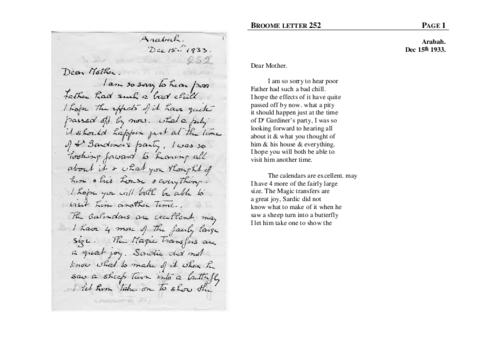 Arabah.
Dec 15th 1933.
252
Dear Mother.
I am so sorry to hear poor
Father had such a bad chill.
I hope the effects of it have quite
passed off by now. what a pity
it should happen just at the time
of Dr Gardiner's party, I was so
looking forward to hearing all
about it & what you thought of
him & his house & everything.
I hope you will both be able to
visit him another time.
The calendars are excellent. may
I have 4 more of the fairly large
size. The Magic transfers are
a great joy. Sardic did not
know what to make of it when he
saw a sheep turn into a butterfly
I let him take on to show the
BROOME LETTER 252 PAGE 1
Arabah.
Dec 15th 1933.
Dear Mother.
I am so sorry to hear poor
Father had such a bad chill.
I hope the effects of it have quite
passed off by now. what a pity
it should happen just at the time
of Dr Gardiner's party, I was so
looking forward to hearing all
about it & what you thought of
him & his house & everything.
I hope you will both be able to
visit him another time.
The calendars are excellent. may
I have 4 more of the fairly large
size. The Magic transfers are
a great joy, Sardic did not
know what to make of it when he
saw a sheep turn into a butterfly
I let him take one to show the